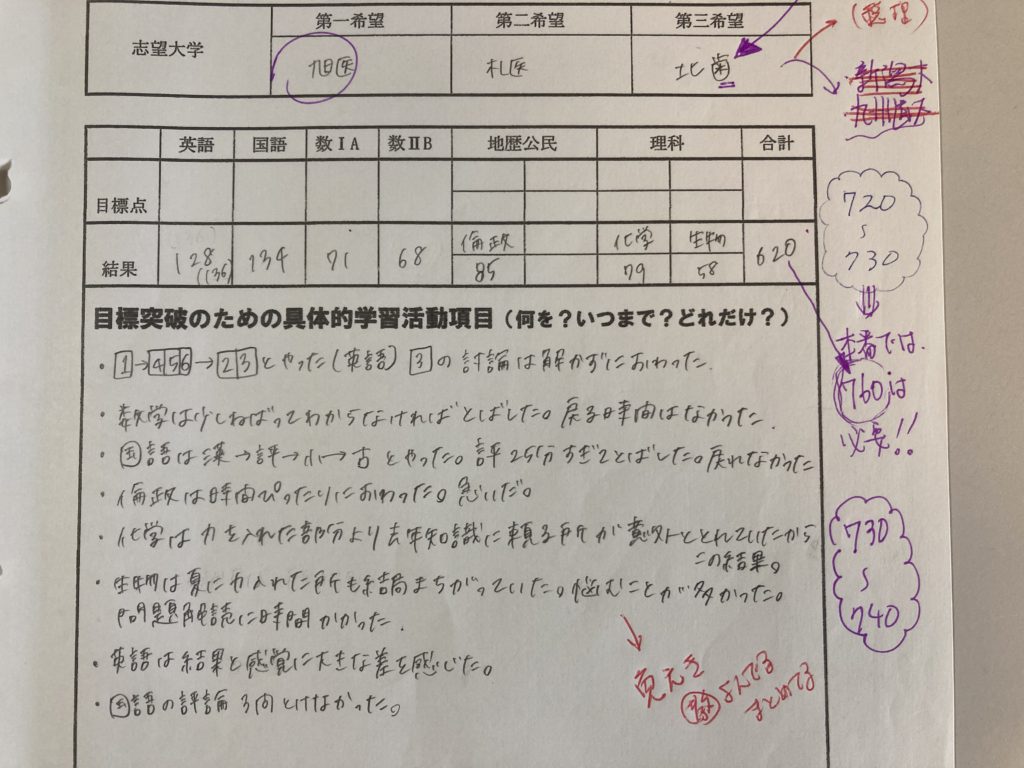 第一希望 第二希望 第三希望
志望大学 旭医 札医 北歯
(整理)
英語 国語 数ⅠA 数ⅡB 地歴公民 理科 合計
目標点
倫政 化学 生物
結果 128 (136) 134 71 68 85 79 58 620
720
〜
730
⇓
本番では、
760は
必要!!
730
〜
740
目標突破のための具体的学習活動項目(何を?いつまで?どれだけ?)
・1→456→23とやった(英語) 3の討論は解かずにおわった.
・数学は少しねばってわからなければとばした。戻る時間はなかった.
・国語は漢→評→小→古とやった。評25分すぎてとばした。戻れなかった
・倫政は時間ぴったりにおわった。急いだ。
・化学は力を入れた部分より去年知識に頼る所が意外ととれていたから
この結果。
・生物は夏に力入れた所も結局まちがっていた。悩むことが多かった。
問題解読に時間かかった.
・英語は結果と感覚に大きな差を感じた。
・国語の評論3問とけなかった。
→
よんでる
まとめてる